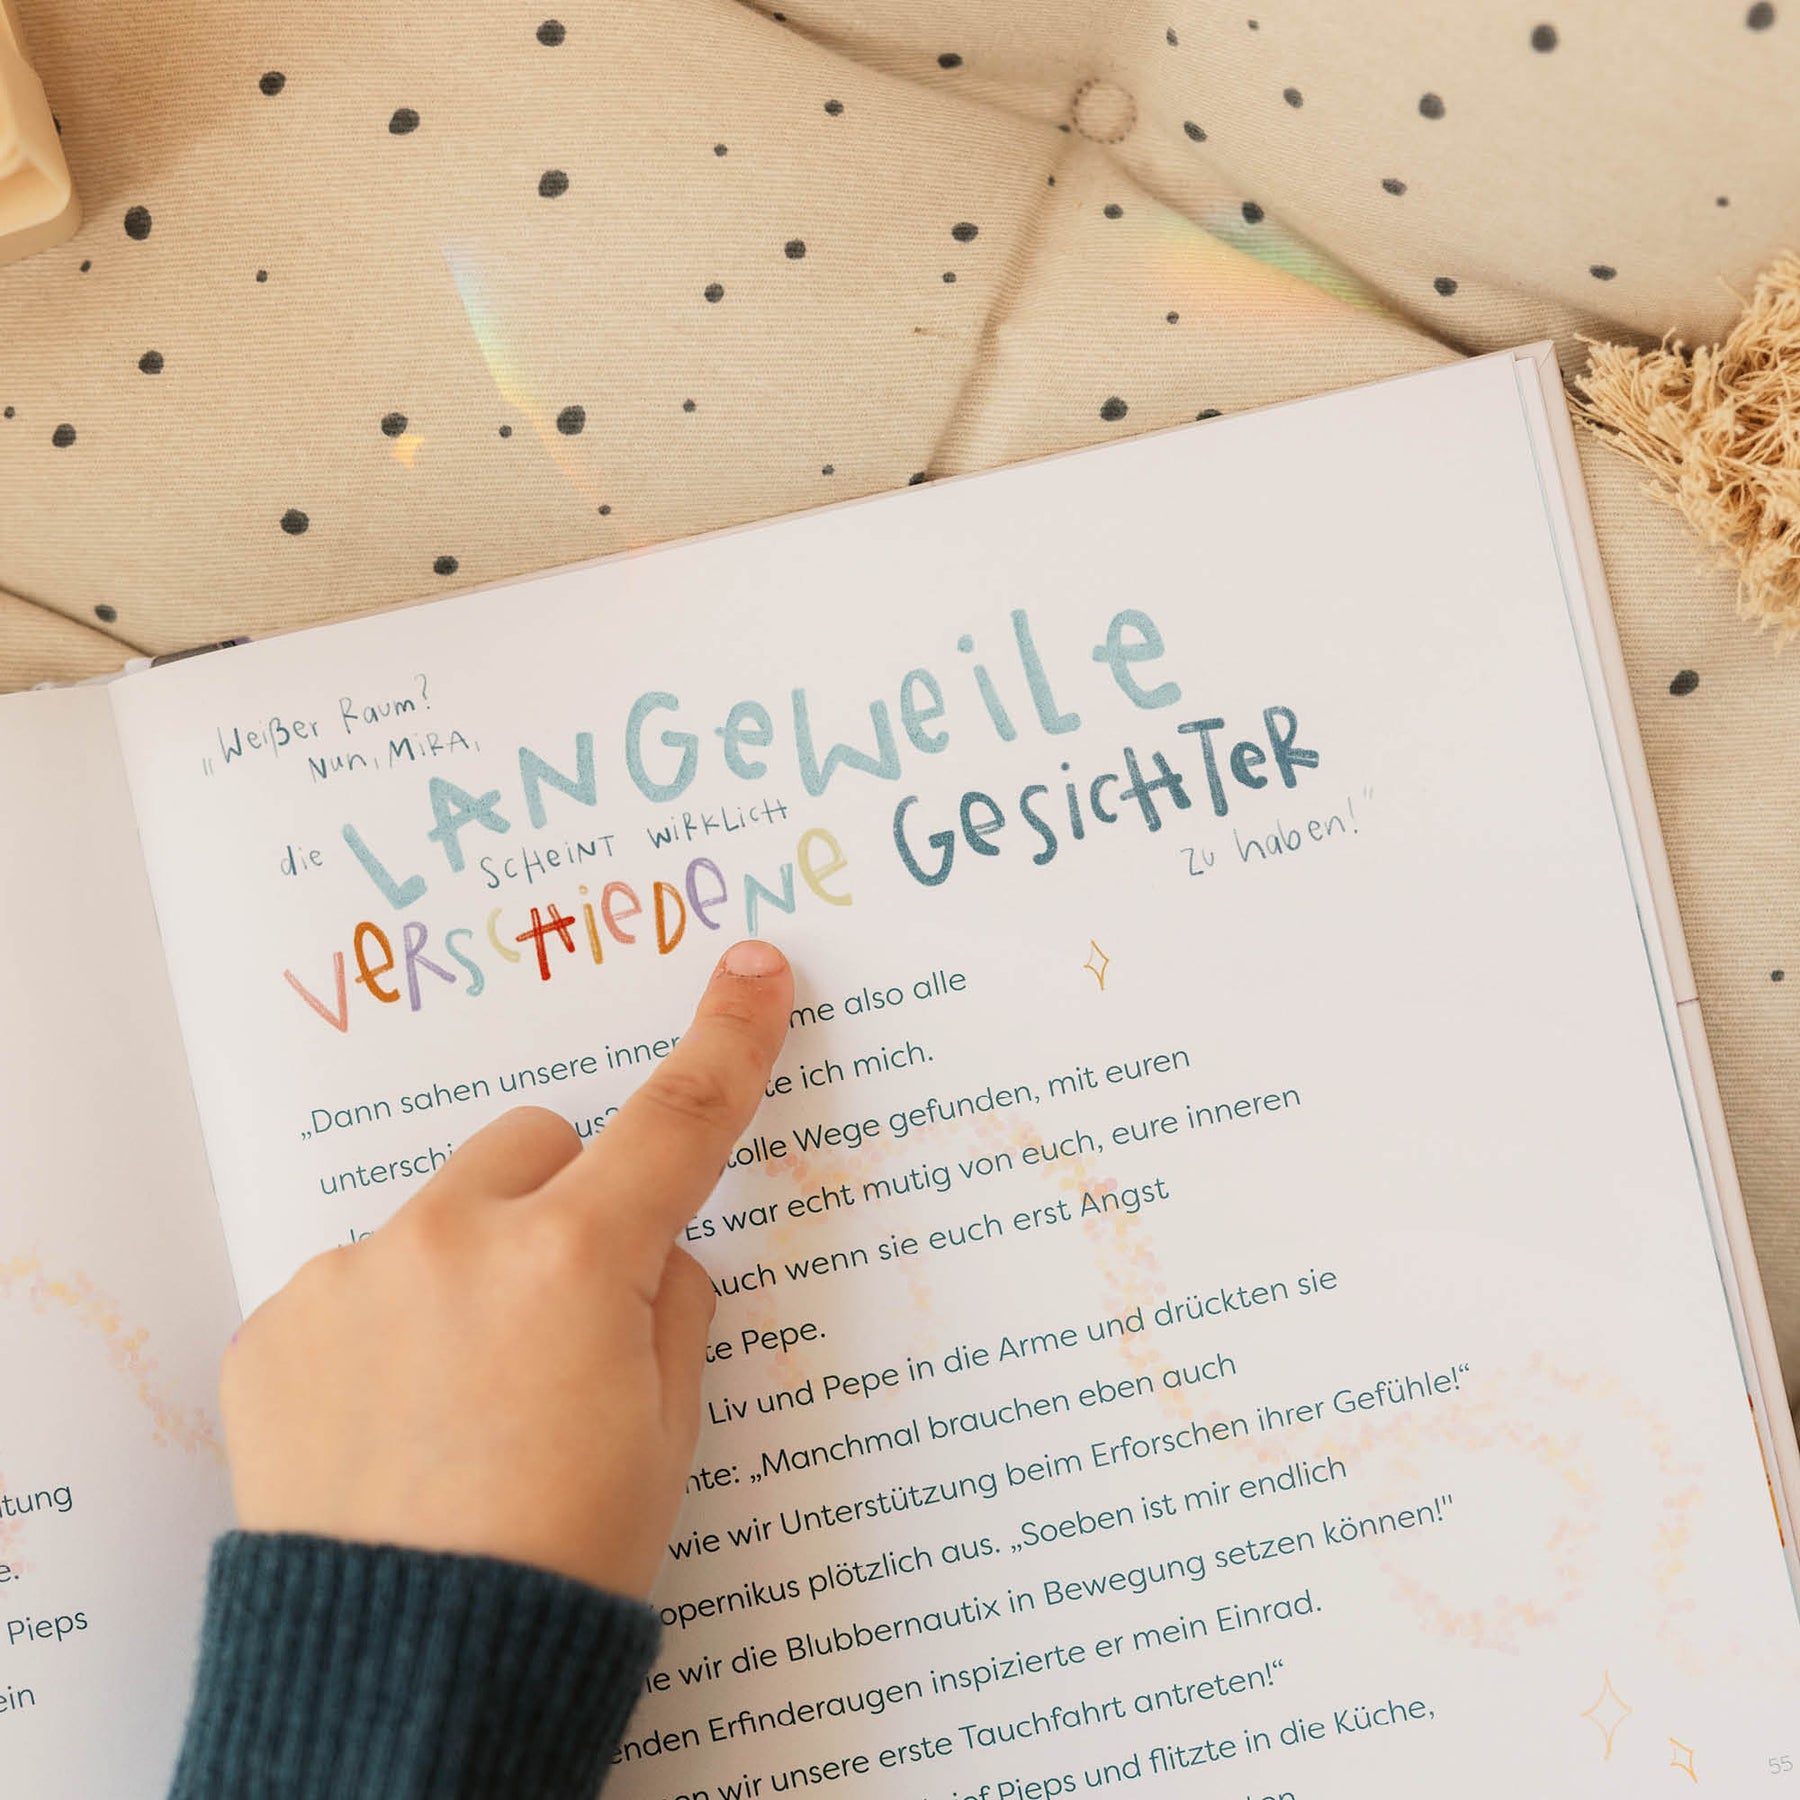 „Weißer Raum?
Nun, MiRA,
die LANGeWeiLe
SCHeiNT WiRKLiCH
VeRSCHieDeNe GeSiCHTeR
zu haben!"
„Dann sahen unsere inner me also alle
unterschi us? te ich mich.
tolle Wege gefunden, mit euren
Es war echt mutig von euch, eure inneren
Auch wenn sie euch erst Angst
te Pepe.
Liv und Pepe in die Arme und drückten sie
nte: „Manchmal brauchen eben auch
wie wir Unterstützung beim Erforschen ihrer Gefühle!“
opernikus plötzlich aus. „Soeben ist mir endlich
ie wir die Blubbernautix in Bewegung setzen können!"
enden Erfinderaugen inspizierte er mein Einrad.
en wir unsere erste Tauchfahrt antreten!“
ief Pieps und flitzte in die Küche,
55
tung
e.
Pieps
ein